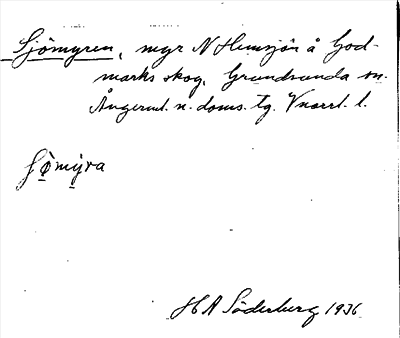 Sjömyren, myr N Hemsjön å God-
marks skog, Grundsunda sn.
Ångerml. n. doms. tg. Vnorrl. l.
ʃö̀mỳra
H A Söderberg 1936